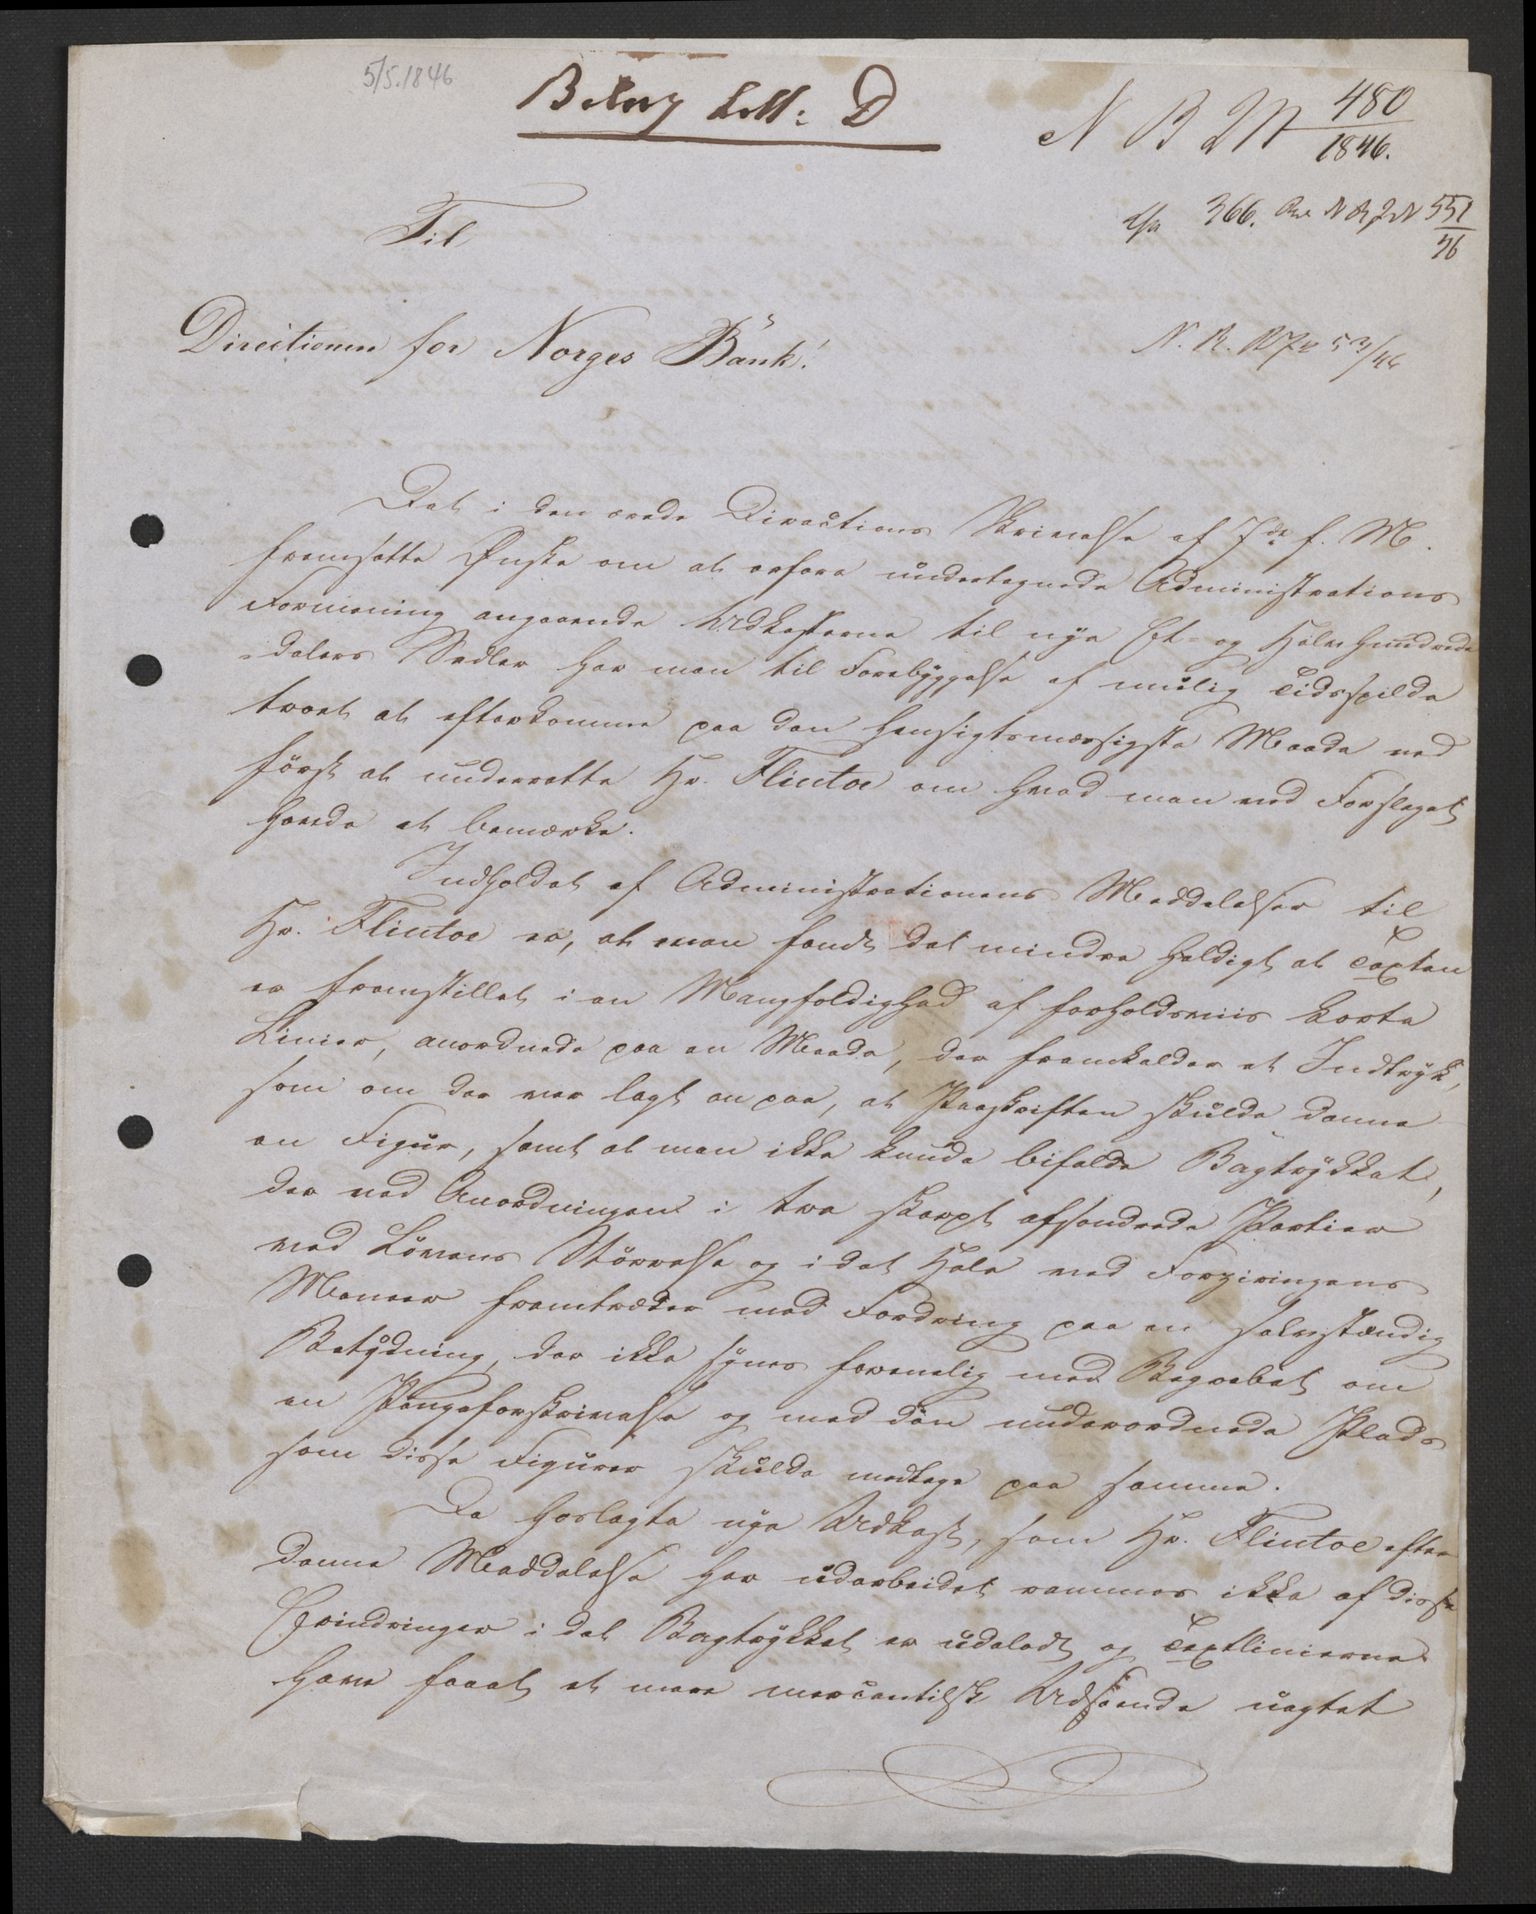 5/5.1846
Bilag Litt: D
N B M 480/1846.
366. N 551/46
N. B. 53/46
Til
Directionen for Norges Bank!
Det i den ærede Directions Skrivelse af 7de f. M.
fremsatte Ønske om at erfare undertegnede Administrations
Formening angaaende Udkasterne til nye Et- og Halvhundrede
dalers Sedler har man til Forebyggelse af mulig Tidsspilde
troet at efterkomme paa den hensigtsmæssigste Maade ved
först at underrette Hr. Flintoe om hvad man ved Forslaget
havde at bemærke.
Indholdet af Administrationens Meddelelser til
Hr. Flintoe er, at man fandt det mindre heldigt at Texten
er fremstillet i en Mangfoldighed af forholdsviis korte
Linier, anordnede paa en Maade, der fremkalder et Indtryk,
som om der var lagt an paa, at Paaskriften skulde danne
en Figur, samt at man ikke kunde bifalde Bagtrykket,
der ved Anordningen i tre skarpt afsondrede Partier
ved Lövens Störrelse og i det Hele ved Forziringens
Maneer fremtræder med Fordring paa en selvstændig
Betydning, der ikke synes forenelig med Begrebet om
en Pengeforskrivelse og med den underordnede Plads
som disse Figurer skulde medtage paa samme.
De hoslagte nye Udkast, som Hr. Flintoe efter
denne Meddelelse har udarbeidet rammes ikke af disse
Erindringer i det Bagtrykket er udeladt og Textlinierne
have faaet et mere mercantilsk Udseende uagtet